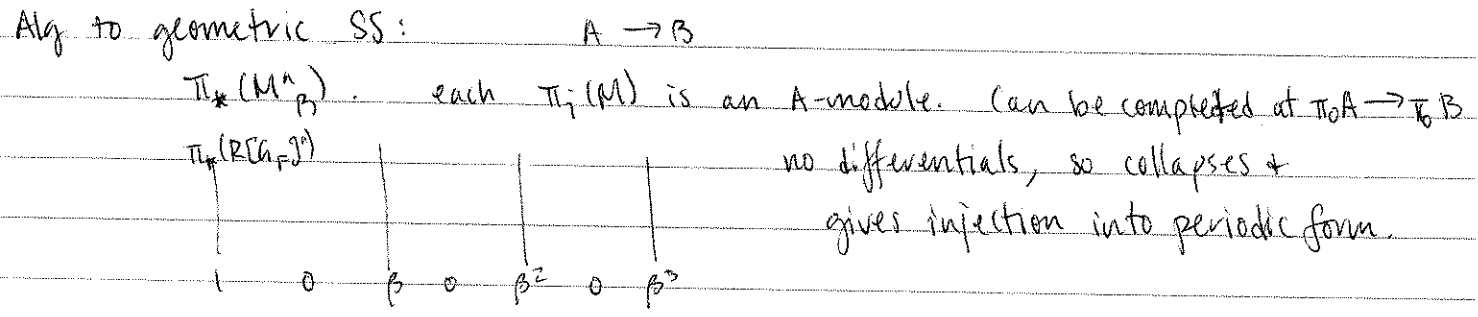 Alg to geometric SS: A → B
π_*(M^_B). each π_i(M) is an A-module. Can be completed at π_0A → π_0B
π_*(R[G_F]^) no differentials, so collapses &
gives injection into periodic form.
1 0 β 0 β² 0 β³